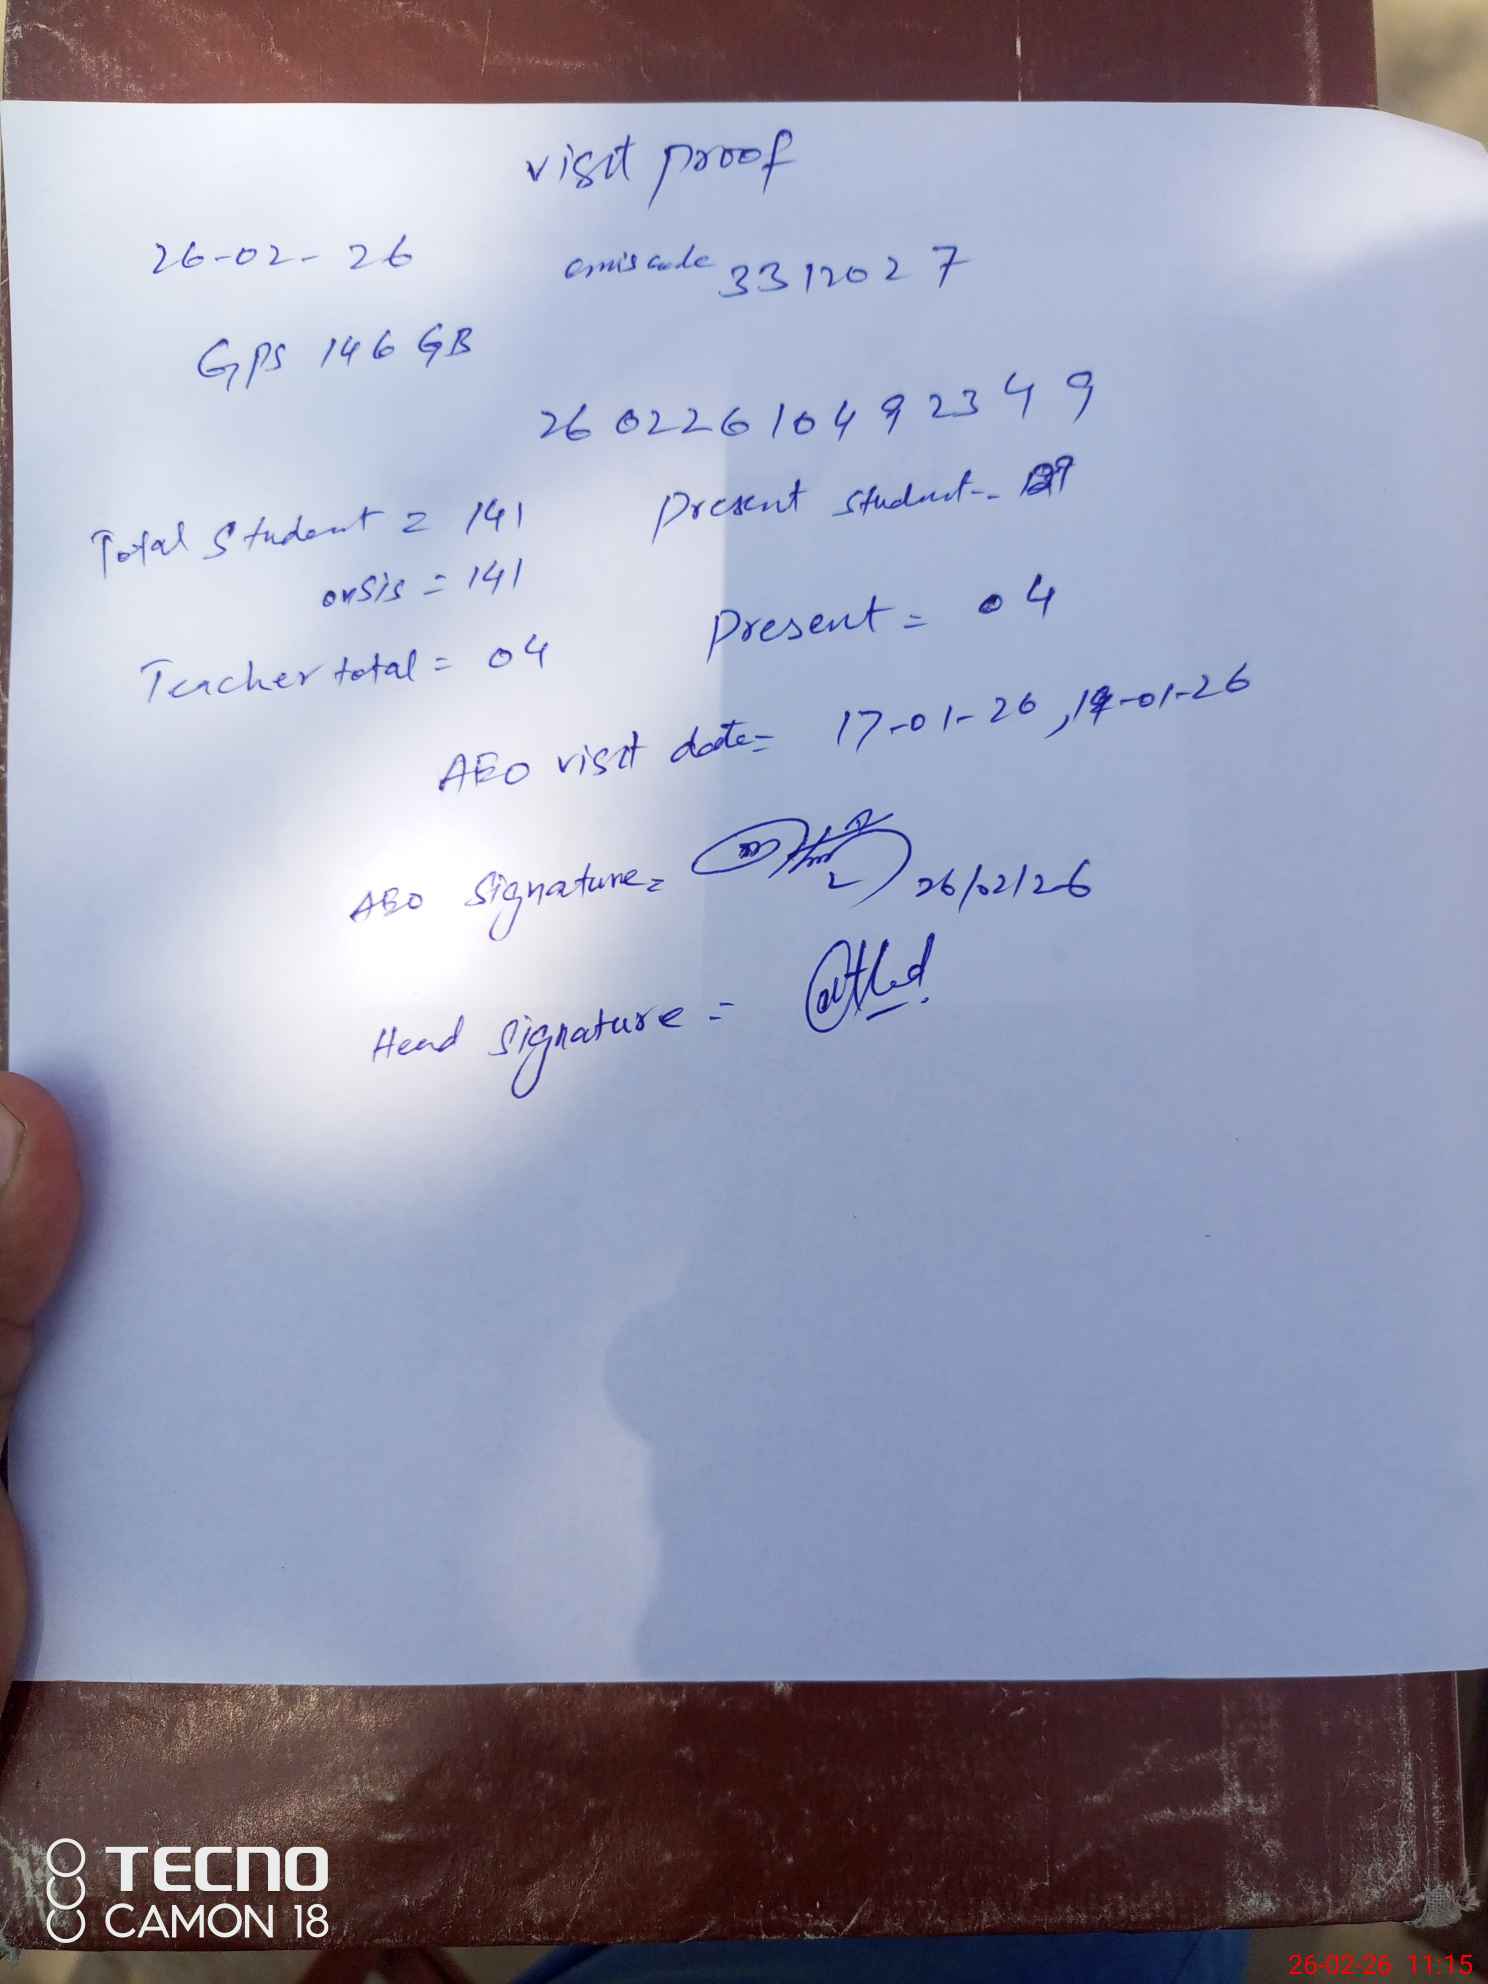 visit proof
26-02-26 emis code 3312027
GPS 146 GB
2602261049 2349
Total Student = 141 Present Student--
onsis = 141
Teacher total = 04 Present = 04
AEO visit date= 17-01-26, -01-26
AEO Signature= 26/02/26
Head Signature =
TECNO
CAMON 18
26-02-26 11:15